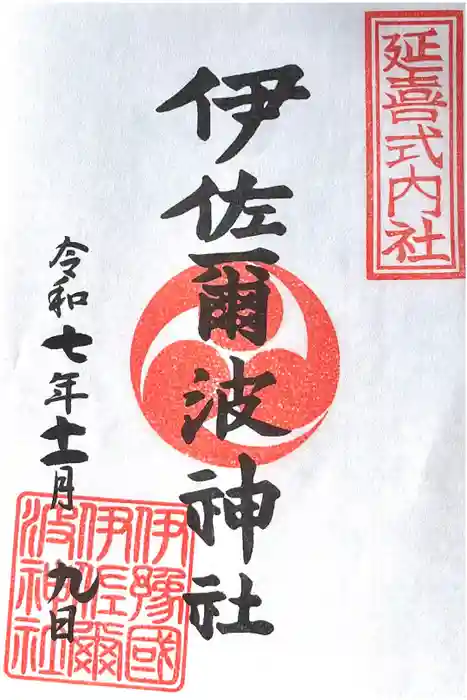 延喜式内社
伊佐爾波神社
令和七年十一月九日
伊豫國
伊佐爾
波神社